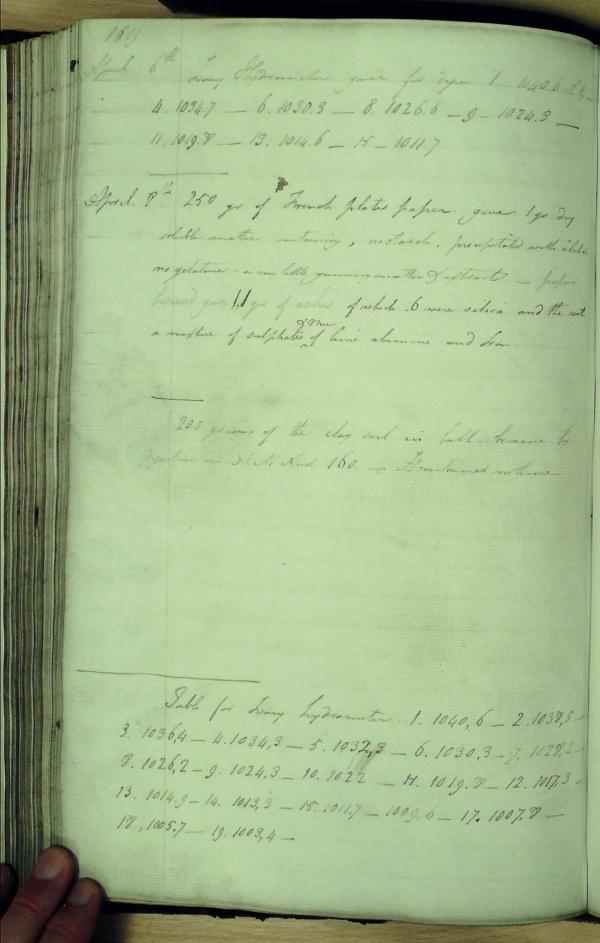 1819.
April 6th Ivory Hydrometer gave for degree 1 - 1040.6
4. 1034.7 — 6. 1030.3 — 8. 1026.6 — 9 - 1024.3 —
11. 1019.8 — 13. 1014.6 — 15 — 1011.7
April 8th 250 grs of French plate paper gave 1 gr dry
soluble matter containing, no starch, precipitated with
no gelatine - a very little gummy matter & extract — paper
burned gave 1,1 grs of ashes of which .6 were silica and the rest
a mixture of sulphates of lime alumine and Iron
200 grains of the clay soil in ball became by
in M. And 160. — It contained no lime
Table for Ivory hydrometer. 1. 1040,6 — 2. 1038,5 -
3. 1036,4 — 4. 1034,3 — 5. 1032,3 — 6. 1030,3 - 7. 1028,2
8. 1026,2 — 9. 1024,3 — 10. 1022 — 11. 1019.8 — 12. 1017,3 -
13. 1014,9 — 14. 1013,3 — 15. 1011,7 — 1009.6 — 17. 1007.8 —
18, 1005.7 — 19. 1003,4 —